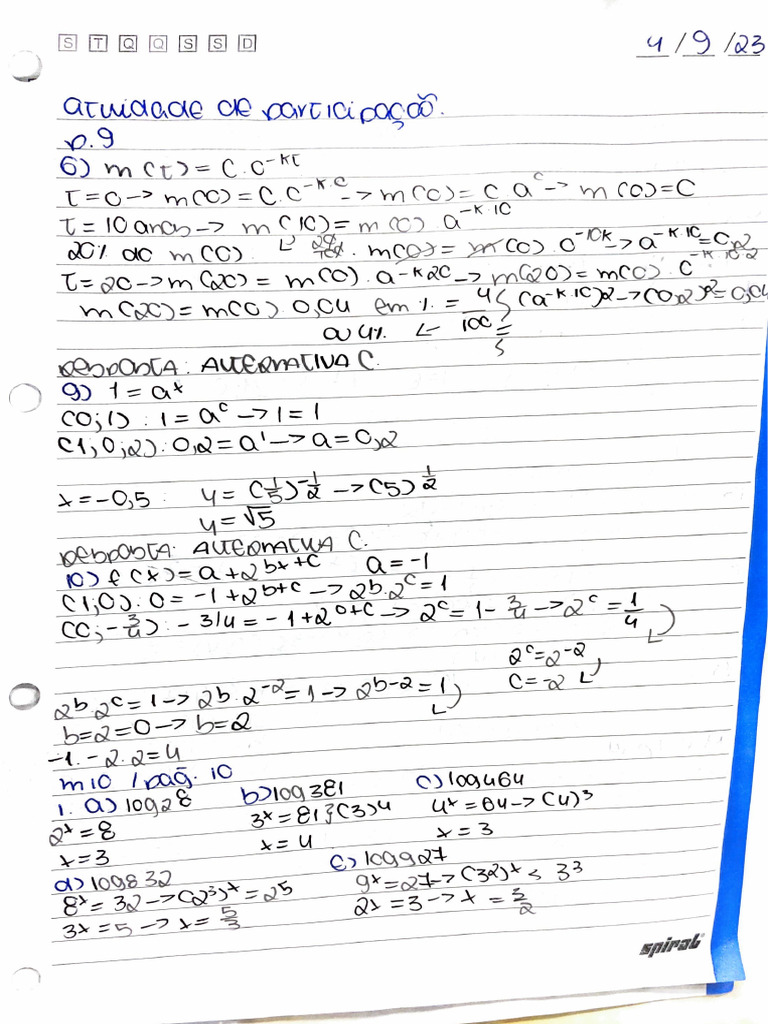 S T Q Q S S D
4/9/23
atividade de participação.
p.9
6) m(t) = C.a^-kt
t=0 -> m(0) = C.a^-k.0 -> m(0) = C a^0 -> m(0) = C
t=10 anos -> m(10) = m(0) a^-k.10
20% de m(0) ↳ 20/100 . m(0) = m(0) . a^-10k -> a^-k.10 = 0,2
t=20 -> m(20) = m(0) . a^-k20 -> m(20) = m(0) . a^-k.10.2
m(20) = m(0) 0,04 em % = 4/100 (a^-k.10)^2 -> (0,2)^2 = 0,04
ou 4% ←
RESPOSTA: ALTERNATIVA C.
9) 1 = a^x
(0;1) : 1 = a^0 -> 1 = 1
(1; 0,2) : 0,2 = a^1 -> a = 0,2
x = -0,5 : y = (1/5)^-1/2 -> (5)^1/2
y = √5
RESPOSTA: ALTERNATIVA C.
10) f(x) = a + 2^bx+c a = -1
(1;0) : 0 = -1 + 2^b+c -> 2^b . 2^c = 1
(0; -3/4) : -3/4 = -1 + 2^0+c -> 2^c = 1 - 3/4 -> 2^c = 1/4
2^c = 2^-2
c = -2
2^b . 2^c = 1 -> 2^b . 2^-2 = 1 -> 2^b-2 = 1
b = 2 = 0 -> b = 2
-1 . -2 . 2 = 4
m10 / pág. 10
1. a) log2 8 b) log3 81 c) log4 64
2^x = 8 3^x = 81 } (3)4 4^x = 64 -> (4)^3
x = 3 x = 4 x = 3
d) log8 32 e) log9 27
8^x = 32 -> (2^3)^x = 2^5 9^x = 27 -> (3^2)^x = 3^3
3x = 5 -> x = 5/3 2x = 3 -> x = 3/2
spiral